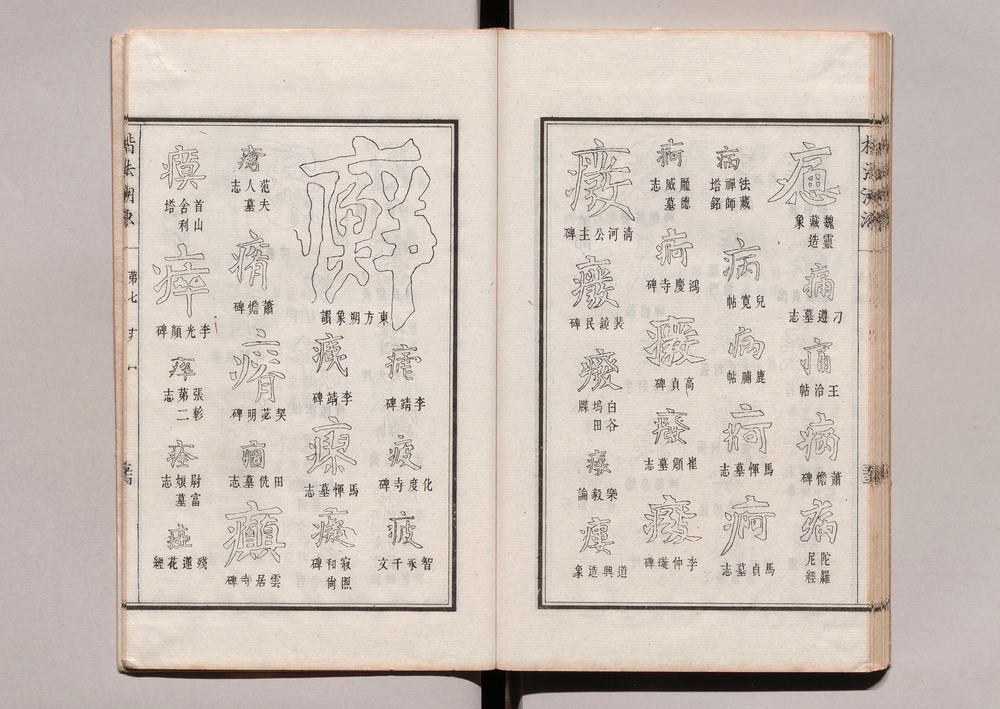 魏靈藏造象
痛
刁遵墓志
痛
王洽帖
病
蕭憺碑
病
陀羅尼經
病
法藏禪師塔銘
病
兒寬帖
病
鹿脯帖
痾
馬惲墓志
痾
馬貞墓志
痾
龐德威墓志
痾
鴻慶寺碑
癈
高貞碑
癈
崔頠墓志
癈
李仲璇碑
癈
清河公主碑
癈
裴鏡民碑
癈
白谷塢田牒
樂毅論
瘻
道興造象
癬
東方朔象讚
李靖碑
疲
化度寺碑
疲
智永千文
痍
李靖碑
瘝
馬惲墓志
癡
寂照和尚碑
瘡
范夫人墓志
瘠
蕭憺碑
癠
契苾明碑
痼
田侁墓志
癲
雲居寺碑
瘼
首山舍利塔
瘁
李光顏碑
瘁
張彰第二志
痊
尉富娘墓志
殘蓮花經
楷法溯源
第七